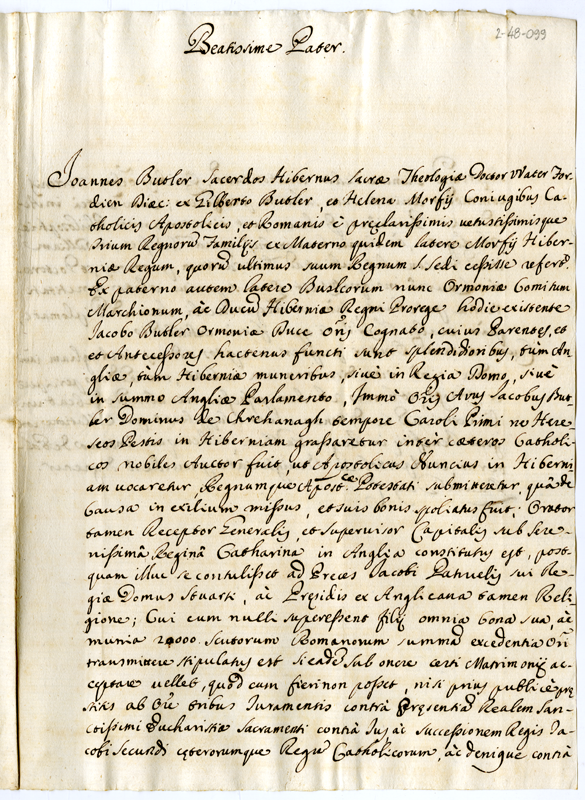 2-48-099
Beatissime Pater.
Joannes Butler Sacerdos Hibernus Sacræ Theologiæ Doctor Water For-
dien Diæc: ex Gilberto Butler, et Helena Morfij Coniugibus Ca-
tholicis Apostolicis, et Romanis è pręclarissimis vetustissimisque
trium Regnorũ Familijs ex Materno quidem latere Morfij Hiber-
niæ Regum, quorũ ultimus suum Regnum S. Sedi cessisse refert.
Ex paterno autem latere Butleorum nunc Ormoniæ Comitum
Marchionum, àc Ducũ Hiberniæ Regni Prorege hodie existente
Jacobo Butler Ormoniæ Duce Oris Cognato, cuius Parentes, et
et Antecessores hactenus functi sunt splendidioribus, tùm An-
gliæ, tùm Hiberniæ muneribus, siue in Regia Domo, siuè
in summo Angliæ Parlamento, Immò Oris Avus Jacobus But-
ler Dominus de tempore Caroli Primi ne Here-
seos Pestis in Hiberniam grassaretur inter cæteros Catholi-
cos nobiles Auctor fuit, ut Apostolicus Nuncius in Hiberni
am uocaretur, Regnumque Apostcæ Potestati submitteretur, quà de
Causa in exilium missus, et suis bonis spoliatus fuit; Orator
tamen Receptor Generalis, et supervisor Capitalis sub Sere-
nissimâ Reginâ Catharina in Anglia constitutus est, post-
quam illuc se contulisset ad Preces Jacobi Patruelis sui Re-
giæ Domus Stuarti, àc Pręsidis ex Anglicana tamen Reli
gione; Cui cum nulli superessent filij omnia bona sua, àc
munia 20000 scutorum Romanorum summã excedentia Ori
transmittere stipulatus est si eadẽ sub onere certi Matrimonij ac-
ceptare vellet, quod cum fieri non posset, nisi prius publicè prę
stitis ab Ore tribus Juramentis contrà Pręsentiã Realem San-
ctissimi Eucharistiæ Sacramenti contrà Jus, àc successionem Regis Ja-
cobi Secundi cęterorumque Regũ Catholicorum, àc denique contrà